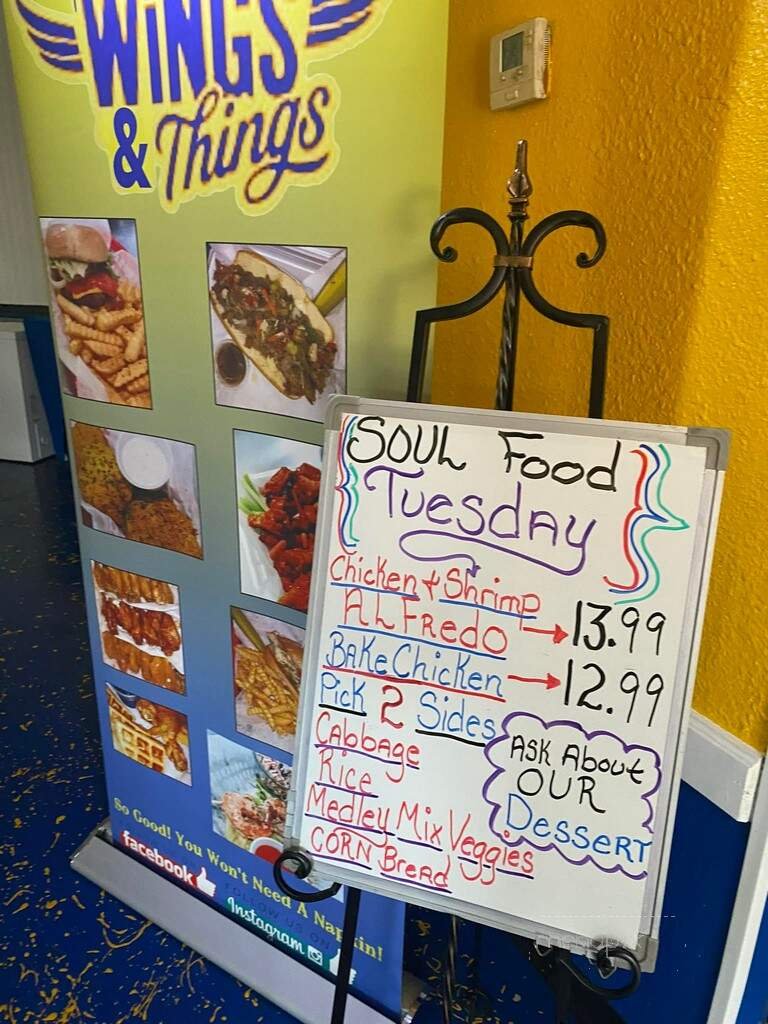 WiNGS
& Things
So Good! You Won't Need A Napkin!
facebook
FOLLOW US ON
Instagram
SOUL Food
Tuesday
Chicken & Shrimp
ALFredo 13.99
BAKe Chicken 12.99
Pick 2 Sides
Cabbage
Rice
Medley Mix Veggies
CORN Bread
ASK About
OUR
Dessert